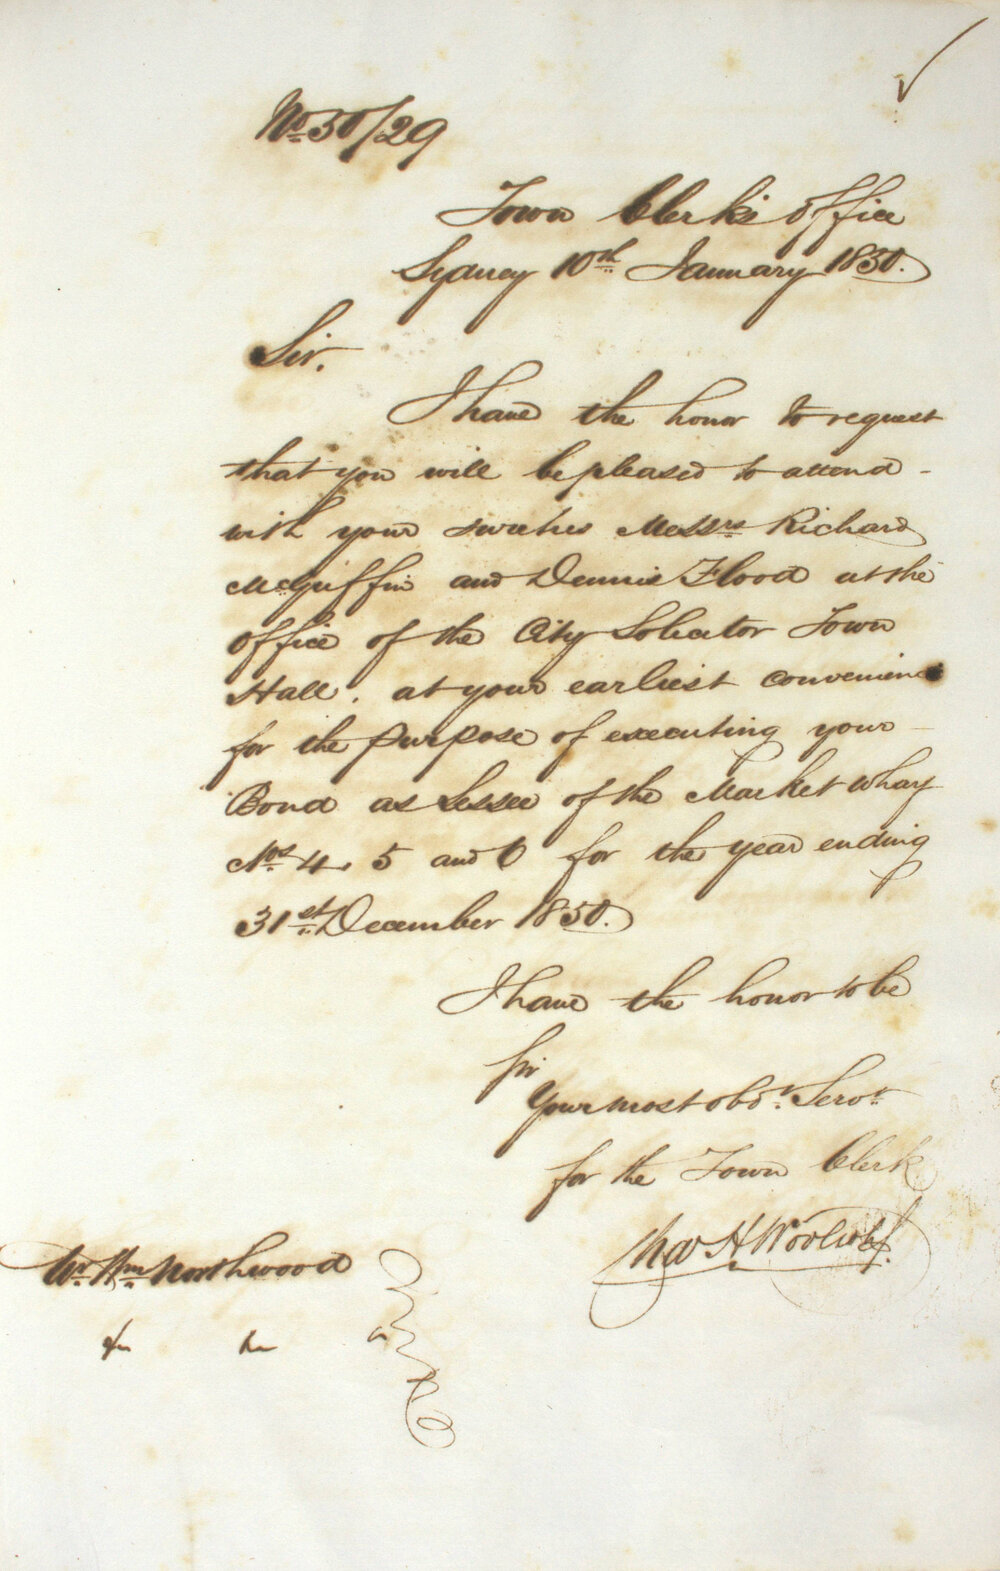 No 50/29
Town Clerk's Office
Sydney 10th January 1850.
Sir.
I have the honor to request
that you will be pleased to attend
with your sureties Messrs Richard
McGuffin and Dennis Flood at the
Office of the City Solicitor Town
Hall, at your earliest convenience
for the purpose of executing your
Bond as Lessee of the Market Wharf
Nos 4, 5 and 6 for the year ending
31st December 1850.
I have the honor to be
Sir
Your most obdt. Servt.
for the Town Clerk
H Woolcott
Mr. Wm Northwood